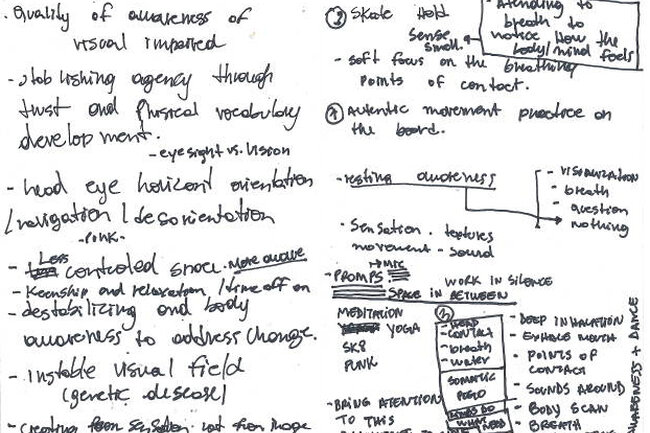 · Quality of awareness of
visual impaired
- stablishing agency through
trust and physical vocabulary
development.
- eyesight vs. vission
- head eye horizont orientation
/ navigation / desorientation
- PUNK -
- Less controled space. More aware
- Keenship and relaxation / time off on
- destabilizing and body
awareness to address change.
- Instable visual field
(genetic desease)
- Creating from sensation not from image
③ Skate Held
Sense
small.
- Atending to
breath to
notice How the
body/mind feels
- soft focus on the breathing
points of contact.
④ Autentic movement practice on
the board.
- resting awareness
- VISUALIZATION
- breath
- question
- nothing
- Sensation . textures
movement - sound
- PROMPS:
WORK IN SILENCE
SPACE IN BETWEEN
MEDITATION
YOGA
SK8
PUNK
- HEAD
- CONTACT
- breath
- water
SOMATIC
- DEEP INHALATION
- EXHALE MOUTH
- POINTS OF
CONTACT
- SOUNDS AROUND
- BODY SCAN
- BREATH
- BRING ATTENTION
TO THIS
+ DANCE